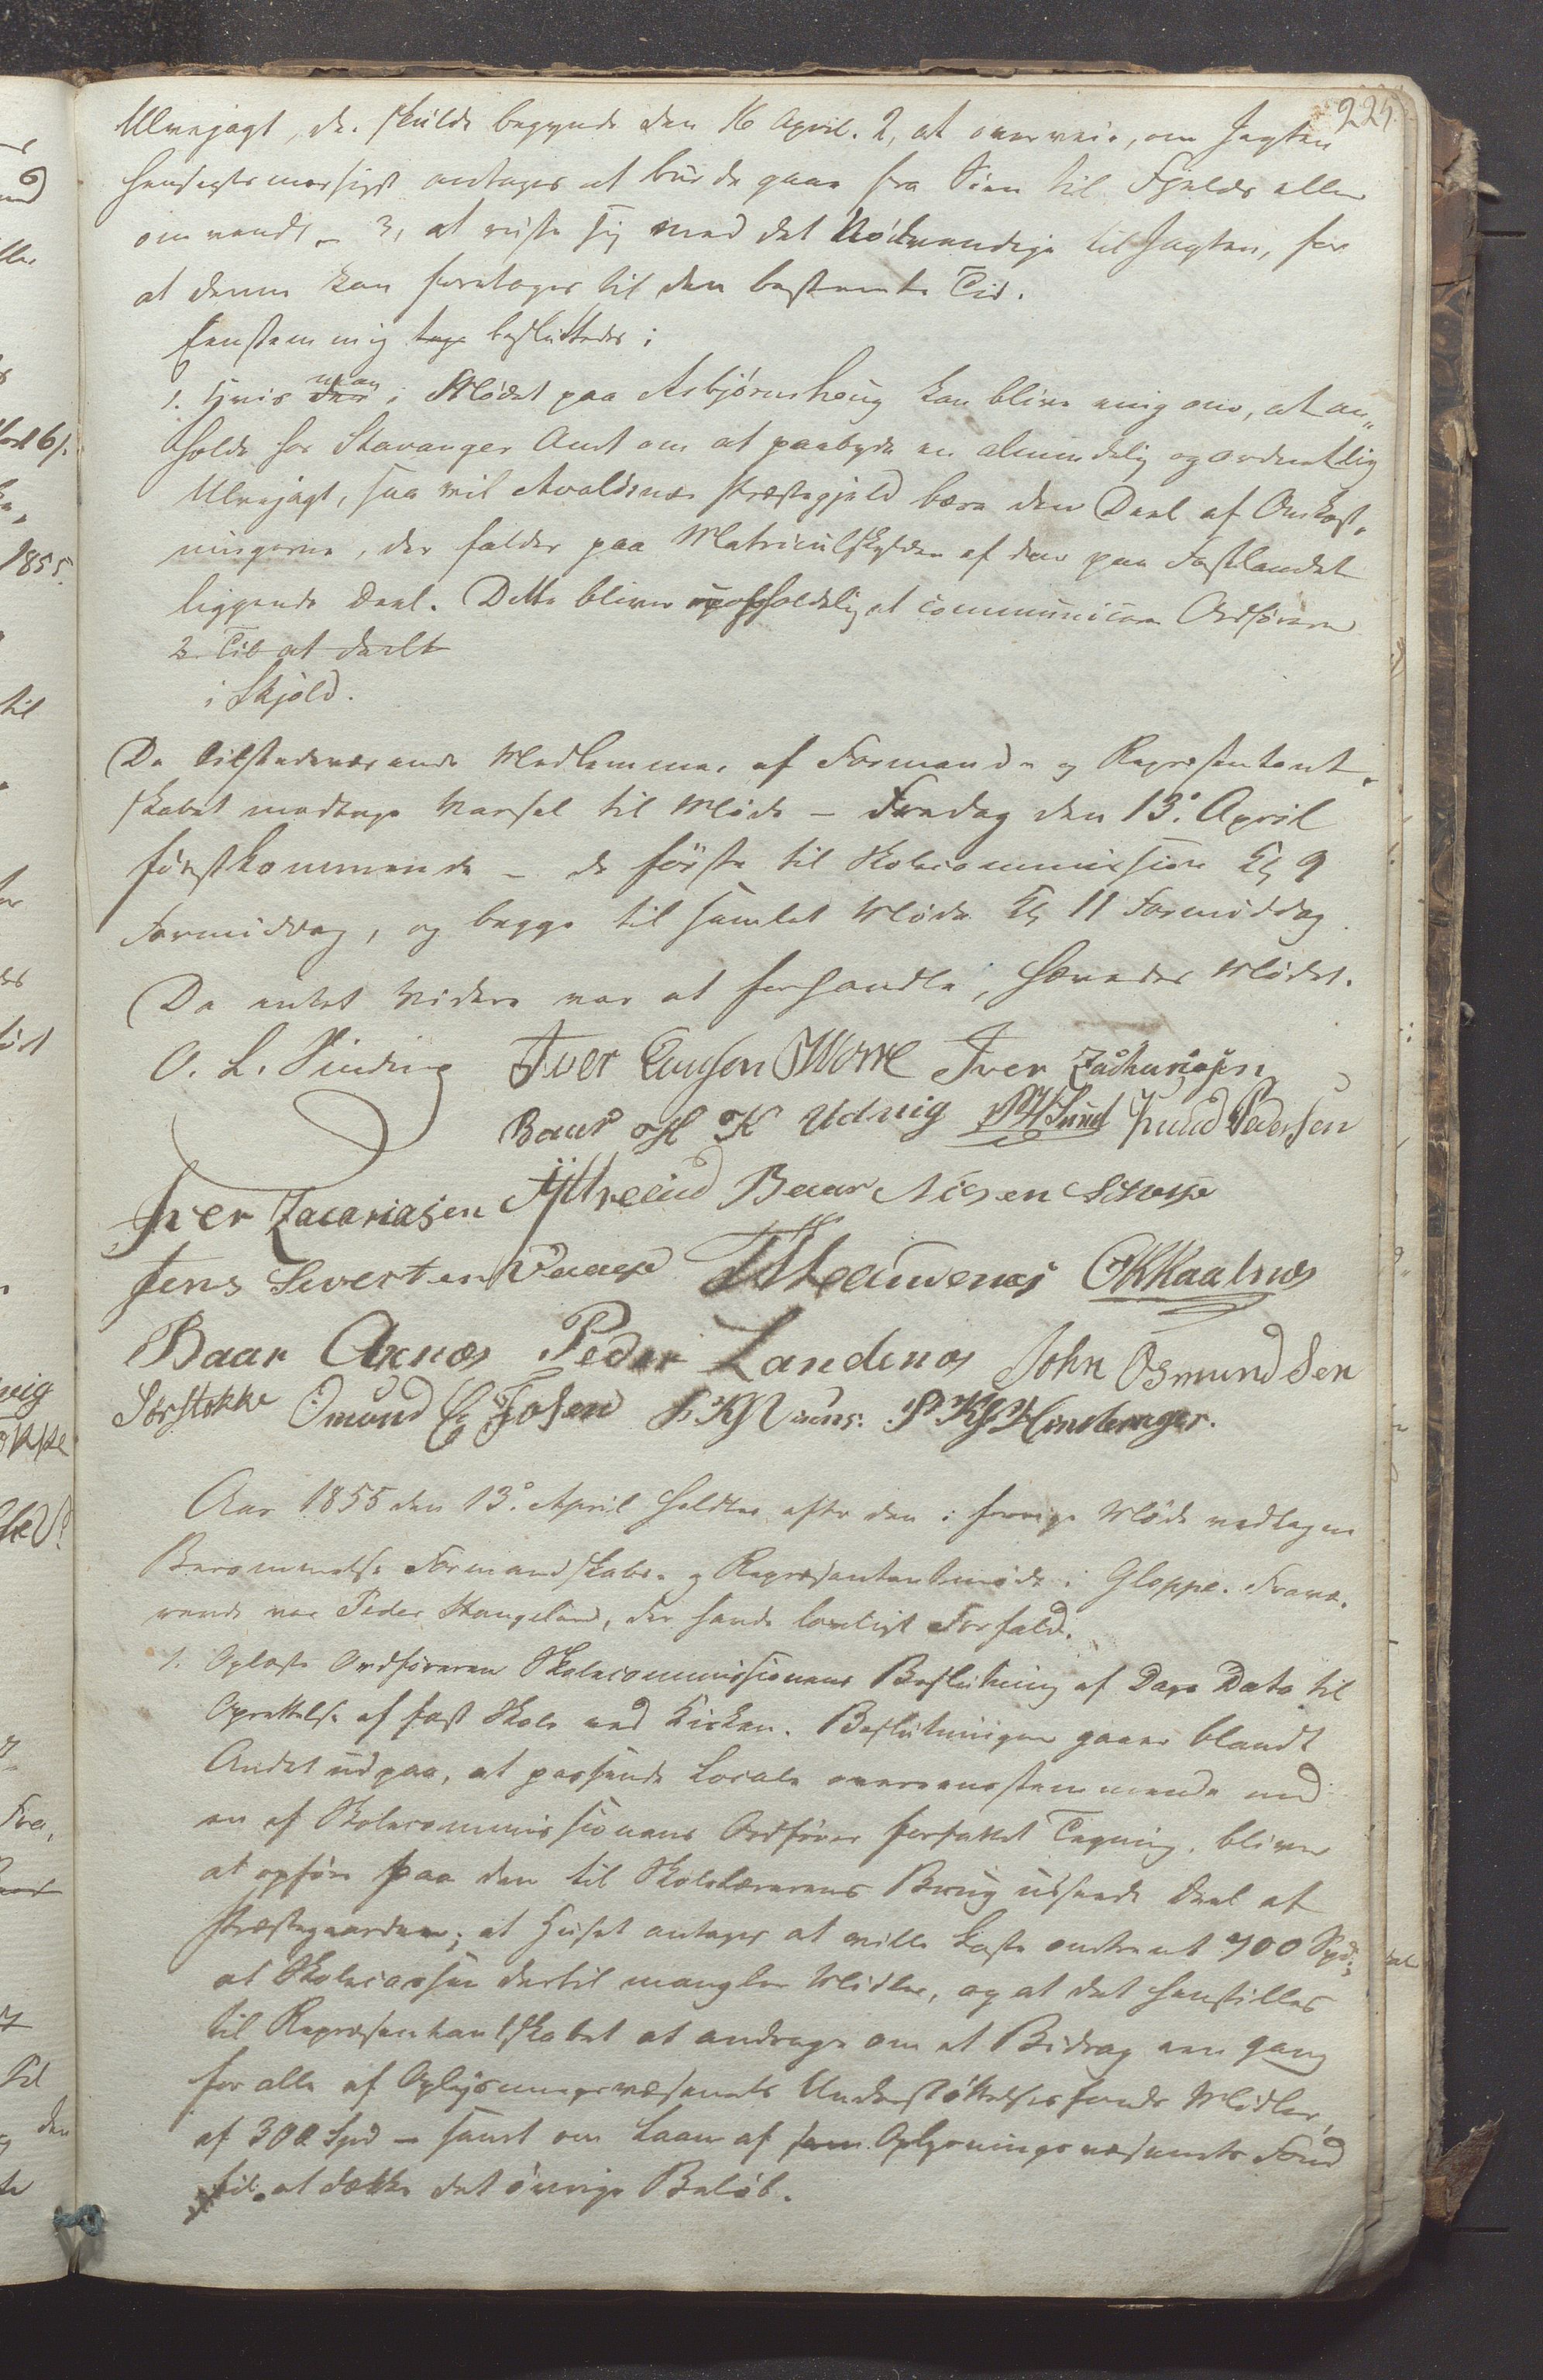 225.
Ulvejagt, der skulde begynde den 16 April. 2, at overveie, om Jagten
hensigtsmæssigst antages at burde gaae fra Søen til Fjelds eller
omvendt – 3, at ruste sig med det Nødvendige til Jagten, for
at denne kan foretages til den bestemte Tid.
Eenstemmig besluttedes:
1. Hvis man i Mødet paa Asbjørnshoug kan blive enig om, at an„
holde hos Stavanger Amt om at paabyde en almindelig og ordentlig
Ulvejagt, saa vil Avaldsnæs Præstegjeld bære den Deel af Omkost„
ningerne, der falder paa Matriculskylden af den paa Fastlandet
liggende Deel. Dette bliver uopholdelig at communicere Ordføreren
2. Til at deelt
i Skjold.
De tilstedeværende Medlemmer af Formands- og Repræsentant„
skabet modtoge Varsel til Møde – Fredag den 13de April
førstkommende – de første til Skolecommission Kl 9
Formiddag, og begge til samlet Møde Kl 11 Formiddag.
Da intet Videre var at forhandle, hævedes Mødet.
O. L. Sinding Iver Ewesen Iver Zachariasen
Baar H K Udvig Knud Pedersen
Iver Zacariasen Ytreeid Baar Nilsen
Jens Sivertsen Vaage OKKaalnæs
Baar Axnæs Peder Landenæs John Osmundsen
Sørstokke Omund E Fosen
Aar 1855 den 13de April holdtes efter den i forrige Møde vedtagne
Berammelse Formandskabs- og Repræsentantmøde i Gloppe. Fravæ„
rende var Peder Stangeland, der havde lovligt Forfald.
1. Oplæste Ordføreren Skolecommissionens Beslutning af Dags Dato til
Oprettelse af fast Skole ved Kirken. Beslutningen gaaer blandt
Andet ud paa, at passende Locale overeensstemmende med
en af Skolecommissionens Ordfører forfattet Tegning, bliver
at opføre paa den til Skolelærerens Brug udseede Deel af
Præstegaarden; at Huset antages at ville koste omtrent 700 Spd;
at Skolecassen dertil mangler Midler, og at det henstilles
til Repræsentantskabet at andrage om et Bidrag een gang
for alle af Oplysningsvæsenets Understøttelsesfonds Midler,
af 300 Spd – samt om Laan af Oplysningsvæsenets Fond
til at dække det øvrige Beløb.